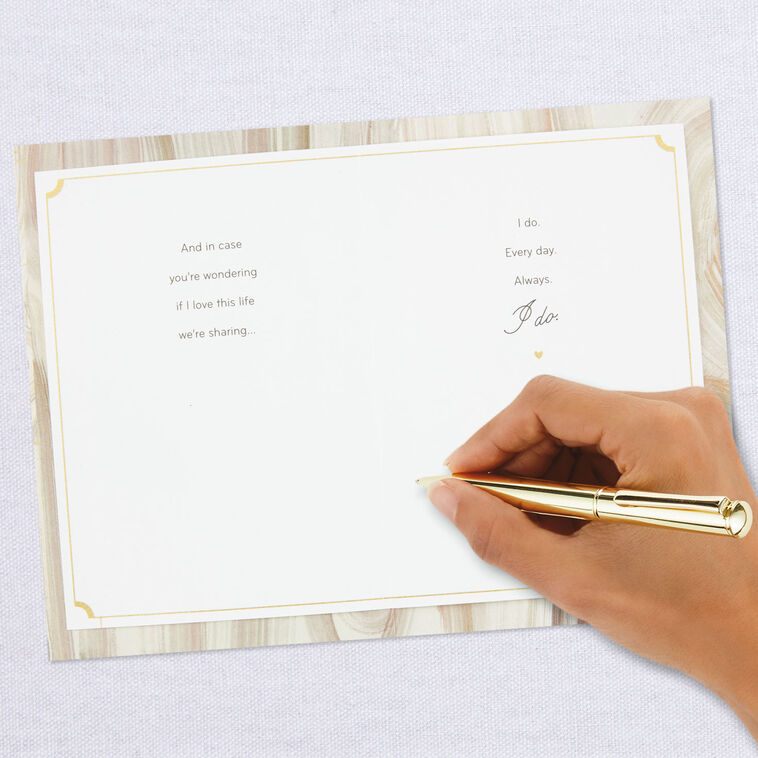 And in case
you're wondering
if I love this life
we're sharing...
I do.
Every day.
Always.
I do.